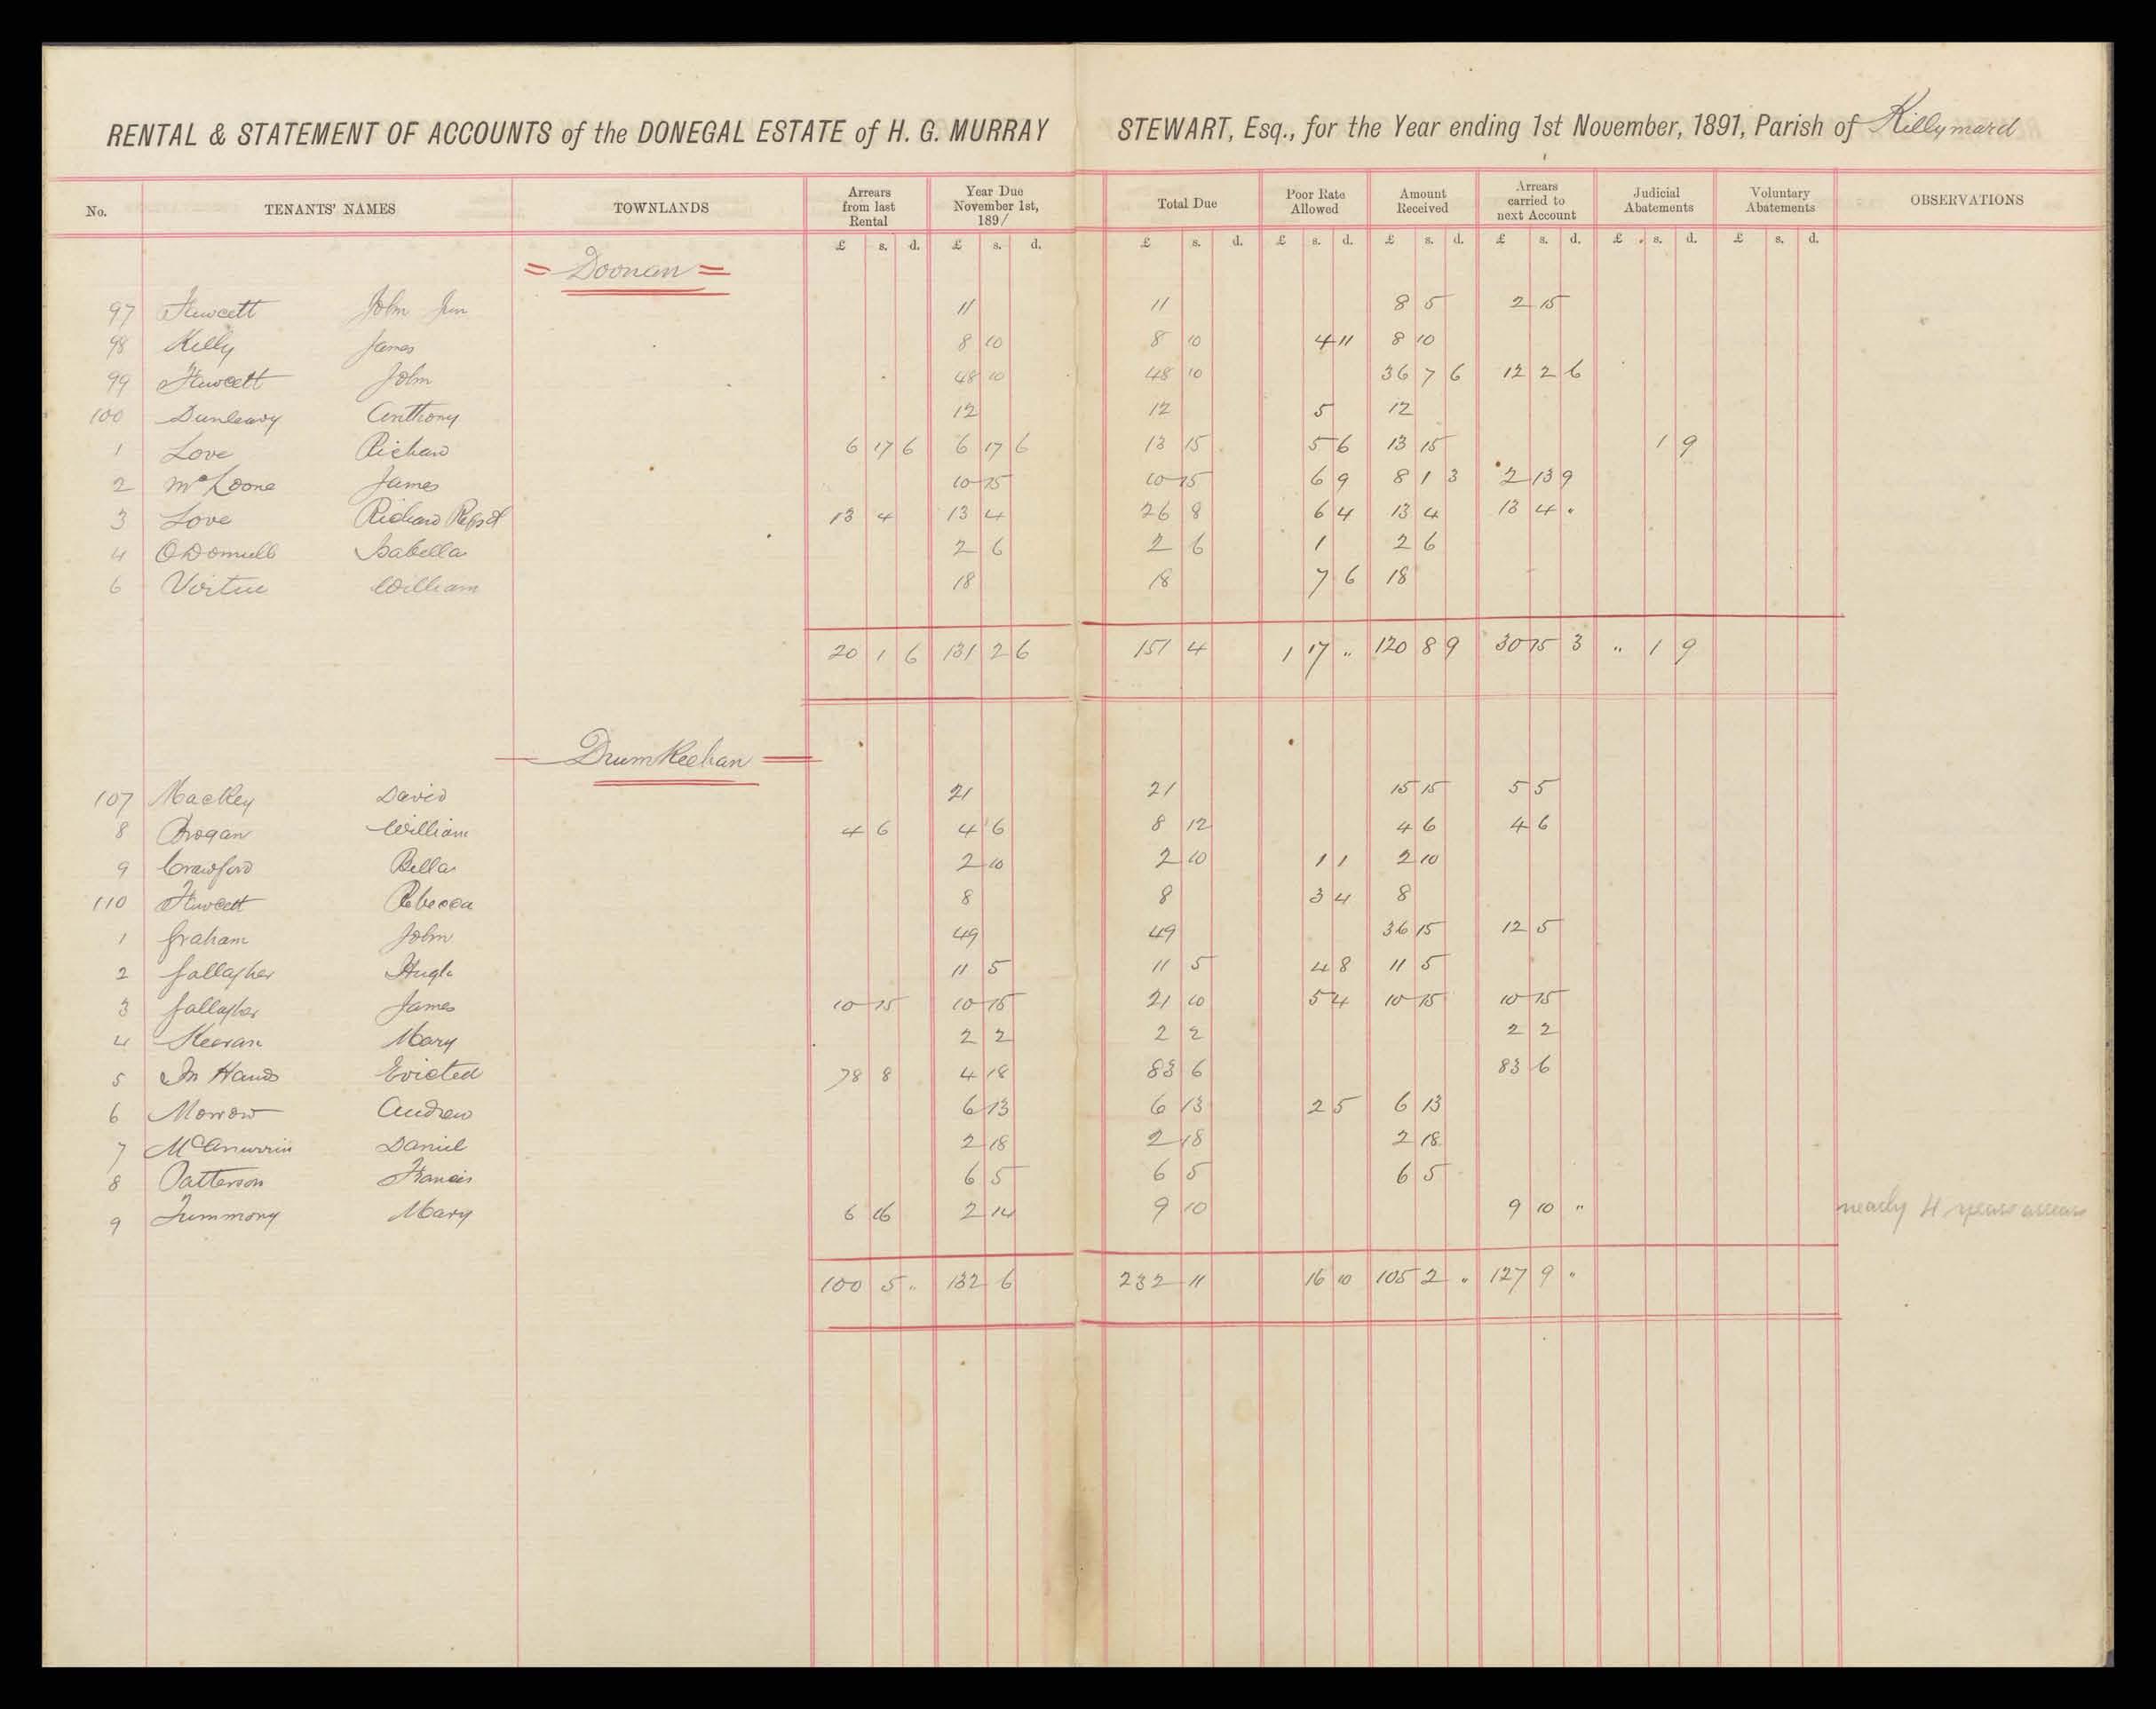 RENTAL & STATEMENT OF ACCOUNTS of the DONEGAL ESTATE of H. G. MURRAY STEWART, Esq., for the Year ending 1st November, 1891, Parish of Killymard
No. TENANTS' NAMES TOWNLANDS Arrears from last Rental Year Due November 1st, 1891 Total Due Poor Rate Allowed Amount Received Arrears carried to next Account Judicial Abatements Voluntary Abatements OBSERVATIONS
£ s. d. £ s. d. £ s. d. £ s. d. £ s. d. £ s. d. £ s. d. £ s. d.
= Doonan =
97 Fawcett John Jun 11 11 8 5 2 15
98 Kelly James 8 10 8 10 4 11 8 10
99 Fawcett John 48 10 48 10 36 7 6 12 2 6
100 Dunleavy Anthony 12 12 5 12
1 Love Richard 6 17 6 6 17 6 13 15 5 6 13 15 1 9
2 McLoone James 10 15 10 15 6 9 8 1 3 2 13 9
3 Love Richard Repst 13 4 13 4 26 8 6 4 13 4 13 4 .
4 ODonnell Isabella 2 6 2 6 1 2 6
6 Virtue William 18 18 7 6 18
20 1 6 131 2 6 151 4 1 17 " 120 8 9 30 15 3 " 1 9
Drumkeehan
107 Mackey David 21 21 15 15 5 5
8 Brogan William 4 6 4 6 8 12 4 6 4 6
9 Crawford Bella 2 10 2 10 1 1 2 10
110 Fawcett Rebecca 8 8 3 4 8
1 Graham John 49 49 36 15 12 5
2 Gallagher Hugh 11 5 11 5 4 8 11 5
3 Gallagher James 10 15 10 15 21 10 5 4 10 15 10 15
4 Keeran Mary 2 2 2 2 2 2
5 In Hands Evicted 78 8 4 18 83 6 83 6
6 Morrow Andrew 6 13 6 13 2 5 6 13
7 Daniel 2 18 2 18 2 18
8 Patterson Francis 6 5 6 5 6 5
9 Tummony Mary 6 16 2 14 9 10 9 10 " nearly 4 years arrears
100 5 " 132 6 232 11 16 10 105 2 " 127 9 "